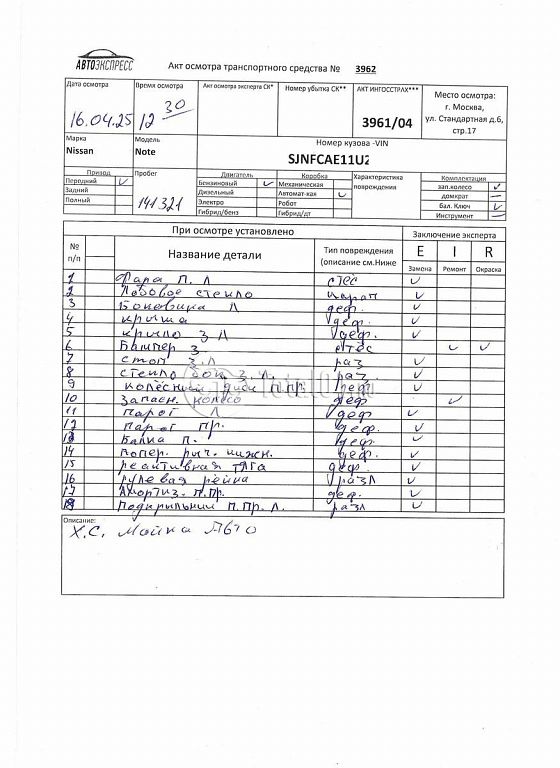 АВТОЭКСПРЕСС
Акт осмотра транспортного средства № 3962
Дата осмотра Время осмотра Акт осмотра эксперта СК* Номер убытка СК** АКТ ИНГОССТРАХ*** Место осмотра:
г. Москва,
ул. Стандартная д.6,
стр.17
16.04.25 12 30 3961/04
Марка Модель Номер кузова -VIN
Nissan Note SJNFCAE11U2
Привод Пробег Двигатель Коробка Характеристика повреждения Комплектация
Передний Бензиновый Механическая зап.колесо
Задний Дизельный Автомат-кая домкрат
Полный Электро Робот бал. Ключ
Гибрид/бенз Гибрид/дт Инструмент
141321
При осмотре установлено Заключение эксперта
№ п/п Название детали Тип повреждения (описание см.Ниже E I R
Замена Ремонт Окраска
1 Фара П. Л стес
2 Лобовое стекло царап
3 Боковина Л деф.
4 крыша деф.
5 крыло З Л деф.
6 Бампер З. стес
7 стоп З.Л раз
8 стекло бок З. Л. раз.
9 колёсный диск П.ПР деф.
10 Запасн. колесо деф
11 порог Л деф
12 порог ПР. деф.
13 Балка П. деф
14 попер. рыч. нижн. деф.
15 реактивная тяга деф.
16 рулевая рейка разл
17 Амортиз. П.ПР. деф.
18 Подкрыльник П.ПР. Л. разл
Описание:
Х.С. Мойка Авто